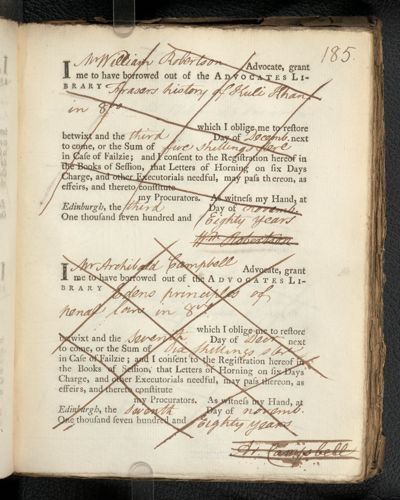 185.
I Mr William Robertson Advocate, grant
me to have borrowed out of the ADVOCATES LI-
BRARY Frasers history of Kuli Khan
in 8vo
which I oblige me to restore
betwixt and the third Day of Decemb. next
to come, or the Sum of five shillings
in Case of Failzie; and I consent to the Registration hereof in
the Books of Session, that Letters of Horning on six Days
Charge, and other Executorials needful, may pass thereon, as
effeirs, and thereto constitute
my Procurators. As witness my Hand, at
Edinburgh, the third Day of novemb.
One thousand seven hundred and Eighty years
Wm Robertson
I Mr Archibald Campbell Advocate, grant
me to have borrowed out of the ADVOCATES LI-
BRARY Edens principles of
penal law in 8vo
which I oblige me to restore
betwixt and the seventh Day of Decr next
to come, or the Sum of Six shillings
in Case of Failzie; and I consent to the Registration hereof in
the Books of Session, that Letters of Horning on six Days
Charge, and other Executorials needful, may pass thereon, as
effeirs, and thereto constitute
my Procurators. As witness my Hand, at
Edinburgh, the Seventh Day of novemb.
One thousand seven hundred and Eighty years
Campbell